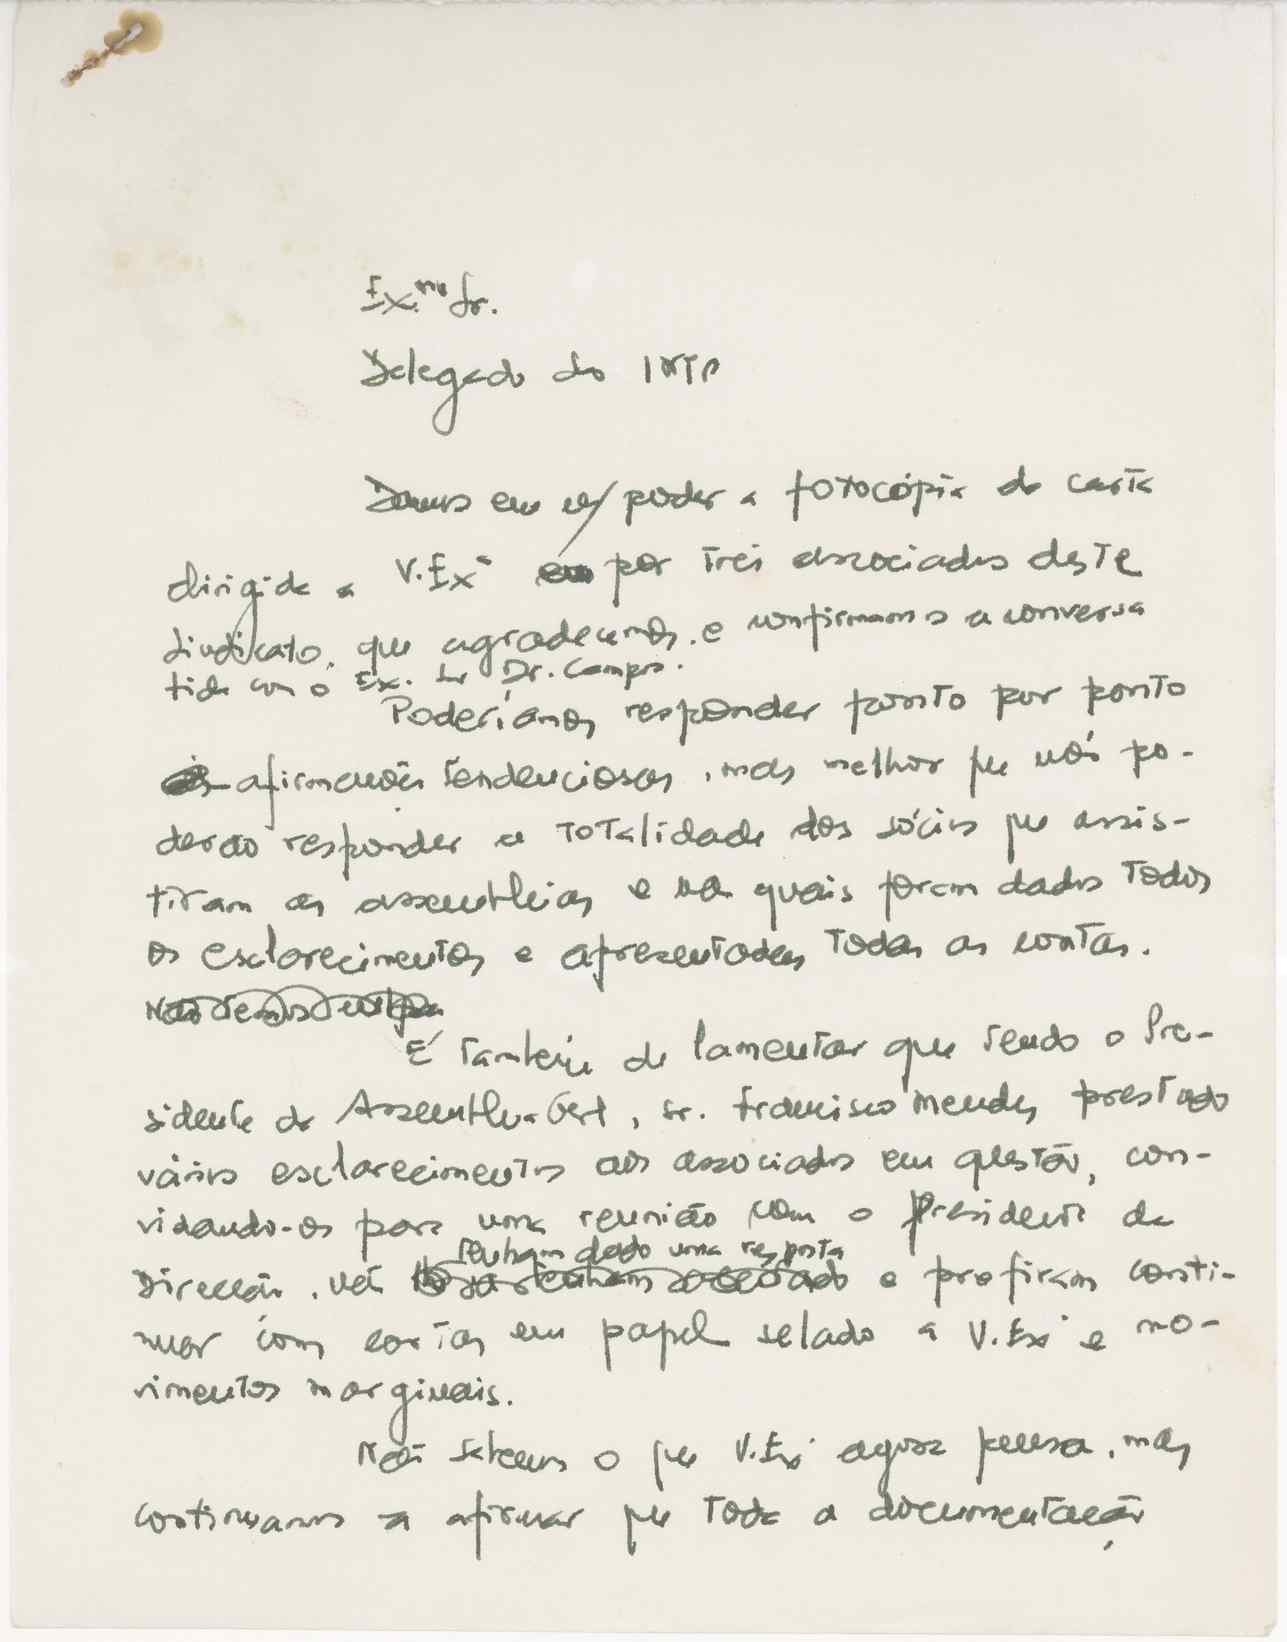 Ex.mo Sr.
Delegado do INTP
Temos em n/ poder a fotocópia da carta
dirigida a V. Exª por três associados deste
Sindicato, que agradecemos, e confirmamos a conversa
tida com o Ex. Sr Dr. Campos.
Poderíamos responder ponto por ponto
às afirmações tendenciosas, mas melhor que nós po-
derão responder a totalidade dos sócios que assis-
tiram às assembleias e na quais foram dados todos
os esclarecimentos e apresentadas todas as contas.
Não temos culpa
É também de lamentar que tendo o Pre-
sidente da Assembleia Geral, sr. Francisco Mendes, prestado
vários esclarecimentos aos associados em questão, con-
vidando-os para uma reunião com o Presidente da
tenham dado uma resposta
Direcção, não e prefiram conti-
nuar com cartas em papel selado a V. Exª e mo-
vimentos marginais.
Não sabemos o que V. Exª agora pensa, mas
continuamos a afirmar que toda a documentação